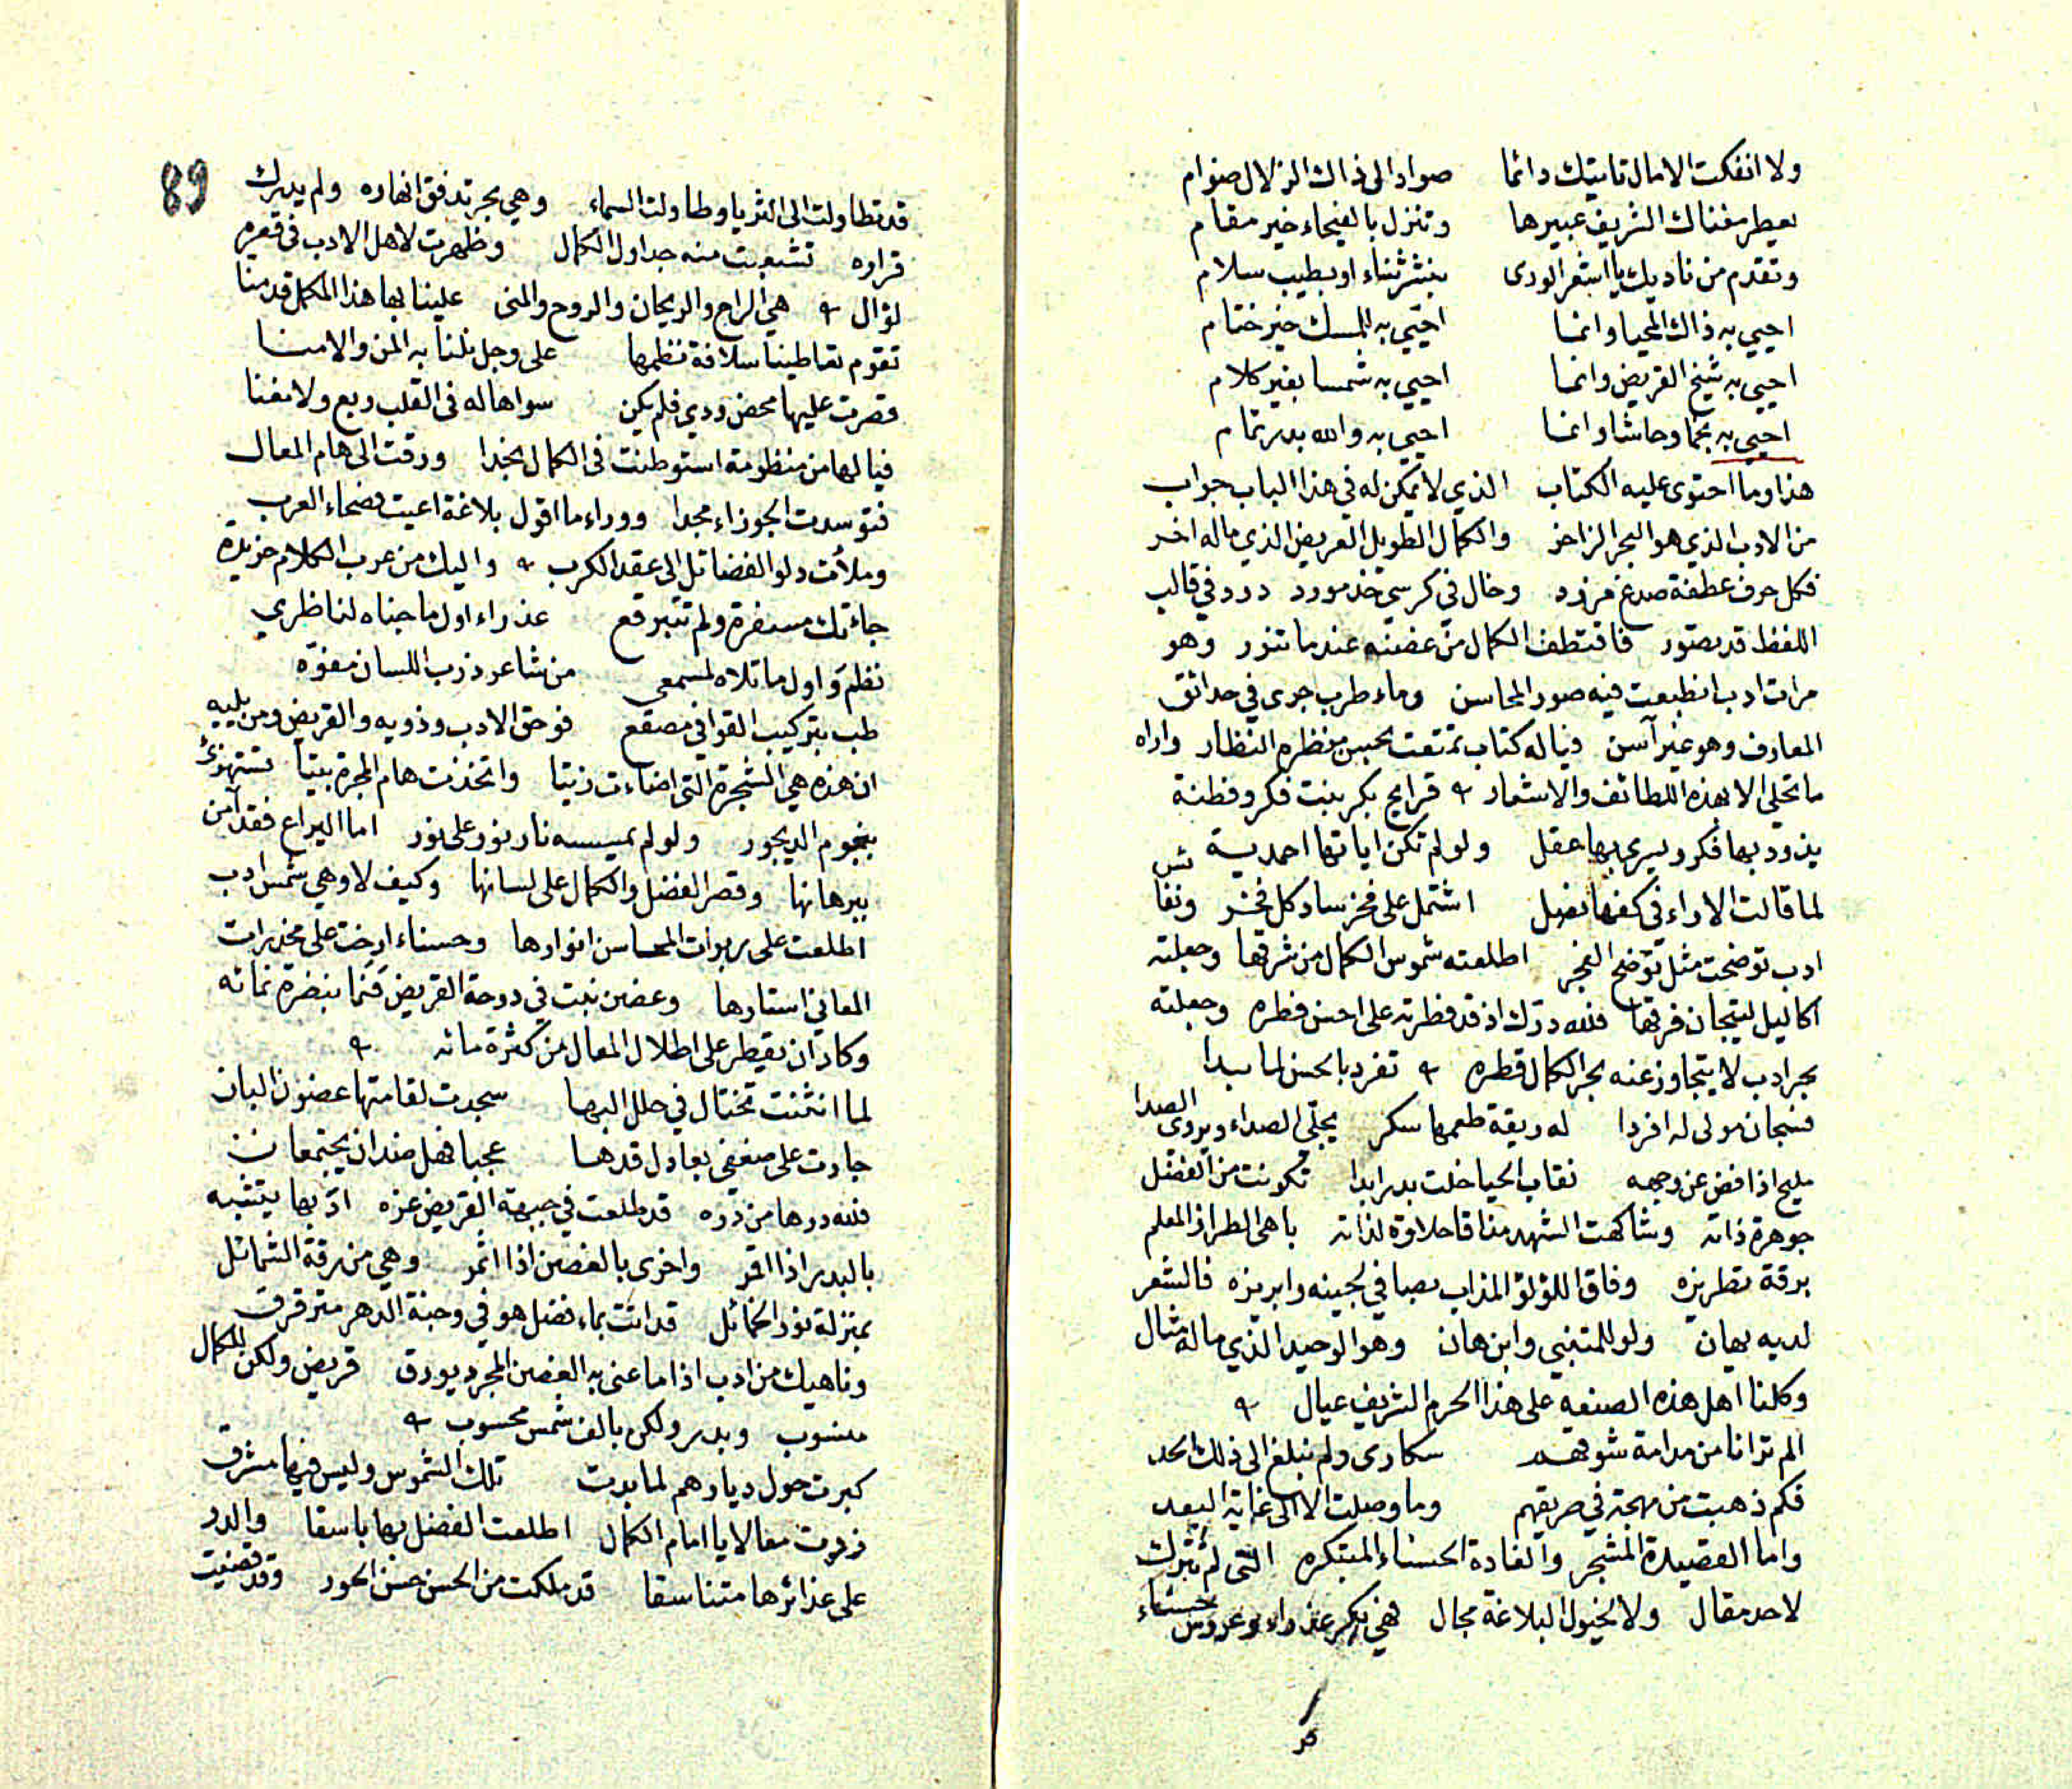 ولا انفكت الامال تاتيك دائما صواد الى ذاك الزلال صوام
يعطر مغناك الشريف عبيرها وتنزل بالفيحاء خير مقام
وتقدم من ناديك يا اشعر الورى بنشر ثناء او بطيب سلام
احيي به ذاك المحيا وانما احيي به المسك خير ختام
احيي به شيخ القريض وانما احيي به شمسا بغير كلام
احيي به نجما وحاشا وانما احيي به والله بدر تمام
هذا وما احتوى عليه الكتاب الذي لا يمكن له في هذا الباب جواب
من الادب الذي هو البحر الزاخر والكمال الطويل العريض الذي ماله اخر
فكل حرف عطفة صدغ مزرد وخال في كرسي خد مورد درر في قالب
اللفظ قد تصور فاقتطف الكمال من غصنه عندما تنور وهو
مرات ادب انطبعت فيه صور المحاسن وماء طرب جرى في حدائق
المعارف وهو غير آسن فياله كتاب تمتعت بحسن منظره النظار واراه
ما تحلى الا بهذه اللطائف والاشعار قرايح بكر بنت فكر وفطنة
يذود بها فكر ويسري بها عقل ولو لم تكن اياتها احمدية
لما قالت الاراء في كفها نصل اشتمل على فخر ساد كل فخر
ادب توضحت مثل توضح الفجر اطلعته شموس الكمال من شرقها وجعلته
اكاليل لتيجان فرقها فلله درك اذ قد فطرته على احسن فطره وجعلته
بحر ادب لا يتجاوز عنه بحر الكمال قطره تفرد بالحسن لما بدا
فسبحان مولى له افردا له ريقة طعمها سكر يجلي الصداء ويروي الصدا
مليح اذا فض عن وجهه نقاب الحيا خلت بدرا بدا تكونت من الفضل
جوهرة ذاته وشاكهت الشهد مذاقا حلاوة لذاته باهى الطراز المعلم
برقة تطريزه وفاق اللؤلؤ المذاب بصافي لجينه وابريزه فالشعر
لديه يهان ولو للمتنبي وابن هان وهو الوحيد الذي ماله مثال
وكلنا اهل هذه الصنعه على هذا الحرم الشريف عيال
الم ترانا من مدامة شوقهم سكارى ولم نبلغ الى ذلك الحد
فكم ذهبت من مهجة في طريقهم وما وصلت الا الى غاية البعد
واما القصيدة المشجر والغادة الحسناء المبتكره التي لم تترك
لاحد مقال ولا لخيول البلاغة مجال فهي بكر عذراء وعروس حسناء
89
قد تطاولت الى الثريا وطاولت السماء وهي بحر تدفق انهاره ولم يدرك
قراره تشعبت منه جداول الكمال وظهرت لاهل الادب في قعره
لؤال هي الراح والريحان والروح والمنى علينا بها هذا المكمل قد منا
تقوم تعاطينا سلافة نظمها على وجل نلنا به المن والامنا
قصرت عليها محض ودي فلم يكن سواها له في القلب ربع ولا مغنا
فيالها من منظومة استوطنت في الكمال نجدا ورقت الى هام المعال
فتوسدت الجوزاء مجدا ووراء ما اقول بلاغة اعيت فصحاء العرب
وملأت دلو الفضائل الى عقد الكرب واليك من عرب الكلام خريدة
جاءتك مسفرة ولم تتبرقع عذراء اول ما جناه لناظري
نظم واول ما تلاه لمسمعي من شاعر ذرب اللسان مفوه
طب بتركيب القوافي مصقع فوحق الادب وذويه والقريض ومن يليه
ان هذه هي الشجرة التي اضاءت زيتا واتخذت هام المجرة بيتا تستهزئ
بنجوم الديجور ولو لم تمسسه نار نور على نور اما اليراع فقد آمن
ببرهانها وقصر الفضل والكمال على لسانها وكيف لا وهي شمس ادب
اطلعت على ربوات المحاسن انوارها وحسناء ارخت على مخدرات
المعاني استارها وغصن نبت في دوحة القريض فنما بنضرة نمائه
وكاد ان يقطر على اطلال المعال من كثرة مائه
لما انثنت تختال في حلل البها سجدت لقامتها غصون البان
جارت على ضعفي بعادل قدها عجبا فهل ضدان يجتمعان
فلله درها من دره قد طلعت في جبهة القريض غره اذ بها يتشبه
بالبدر اذا اقمر واخرى بالغصن اذا اثمر وهي من رقة الشمائل
بمنزلة نور الخمائل قد اتت بماء فضل هو في وجنة الدهر مترقرق
وناهيك من ادب اذا ما غنى به الغصن المجرد يورق قريض ولكن للكمال
منسوب وبدر ولكن بالف شمس محسوب
كبرت حول ديارهم لما بدت تلك الشموس وليس فيها مشرق
زدت معالا يا امام الكمال اطلعت الفضل بها باسقا والدر
على غدائرها متناسقا قد ملكت من الحسن حسن الحور وقد